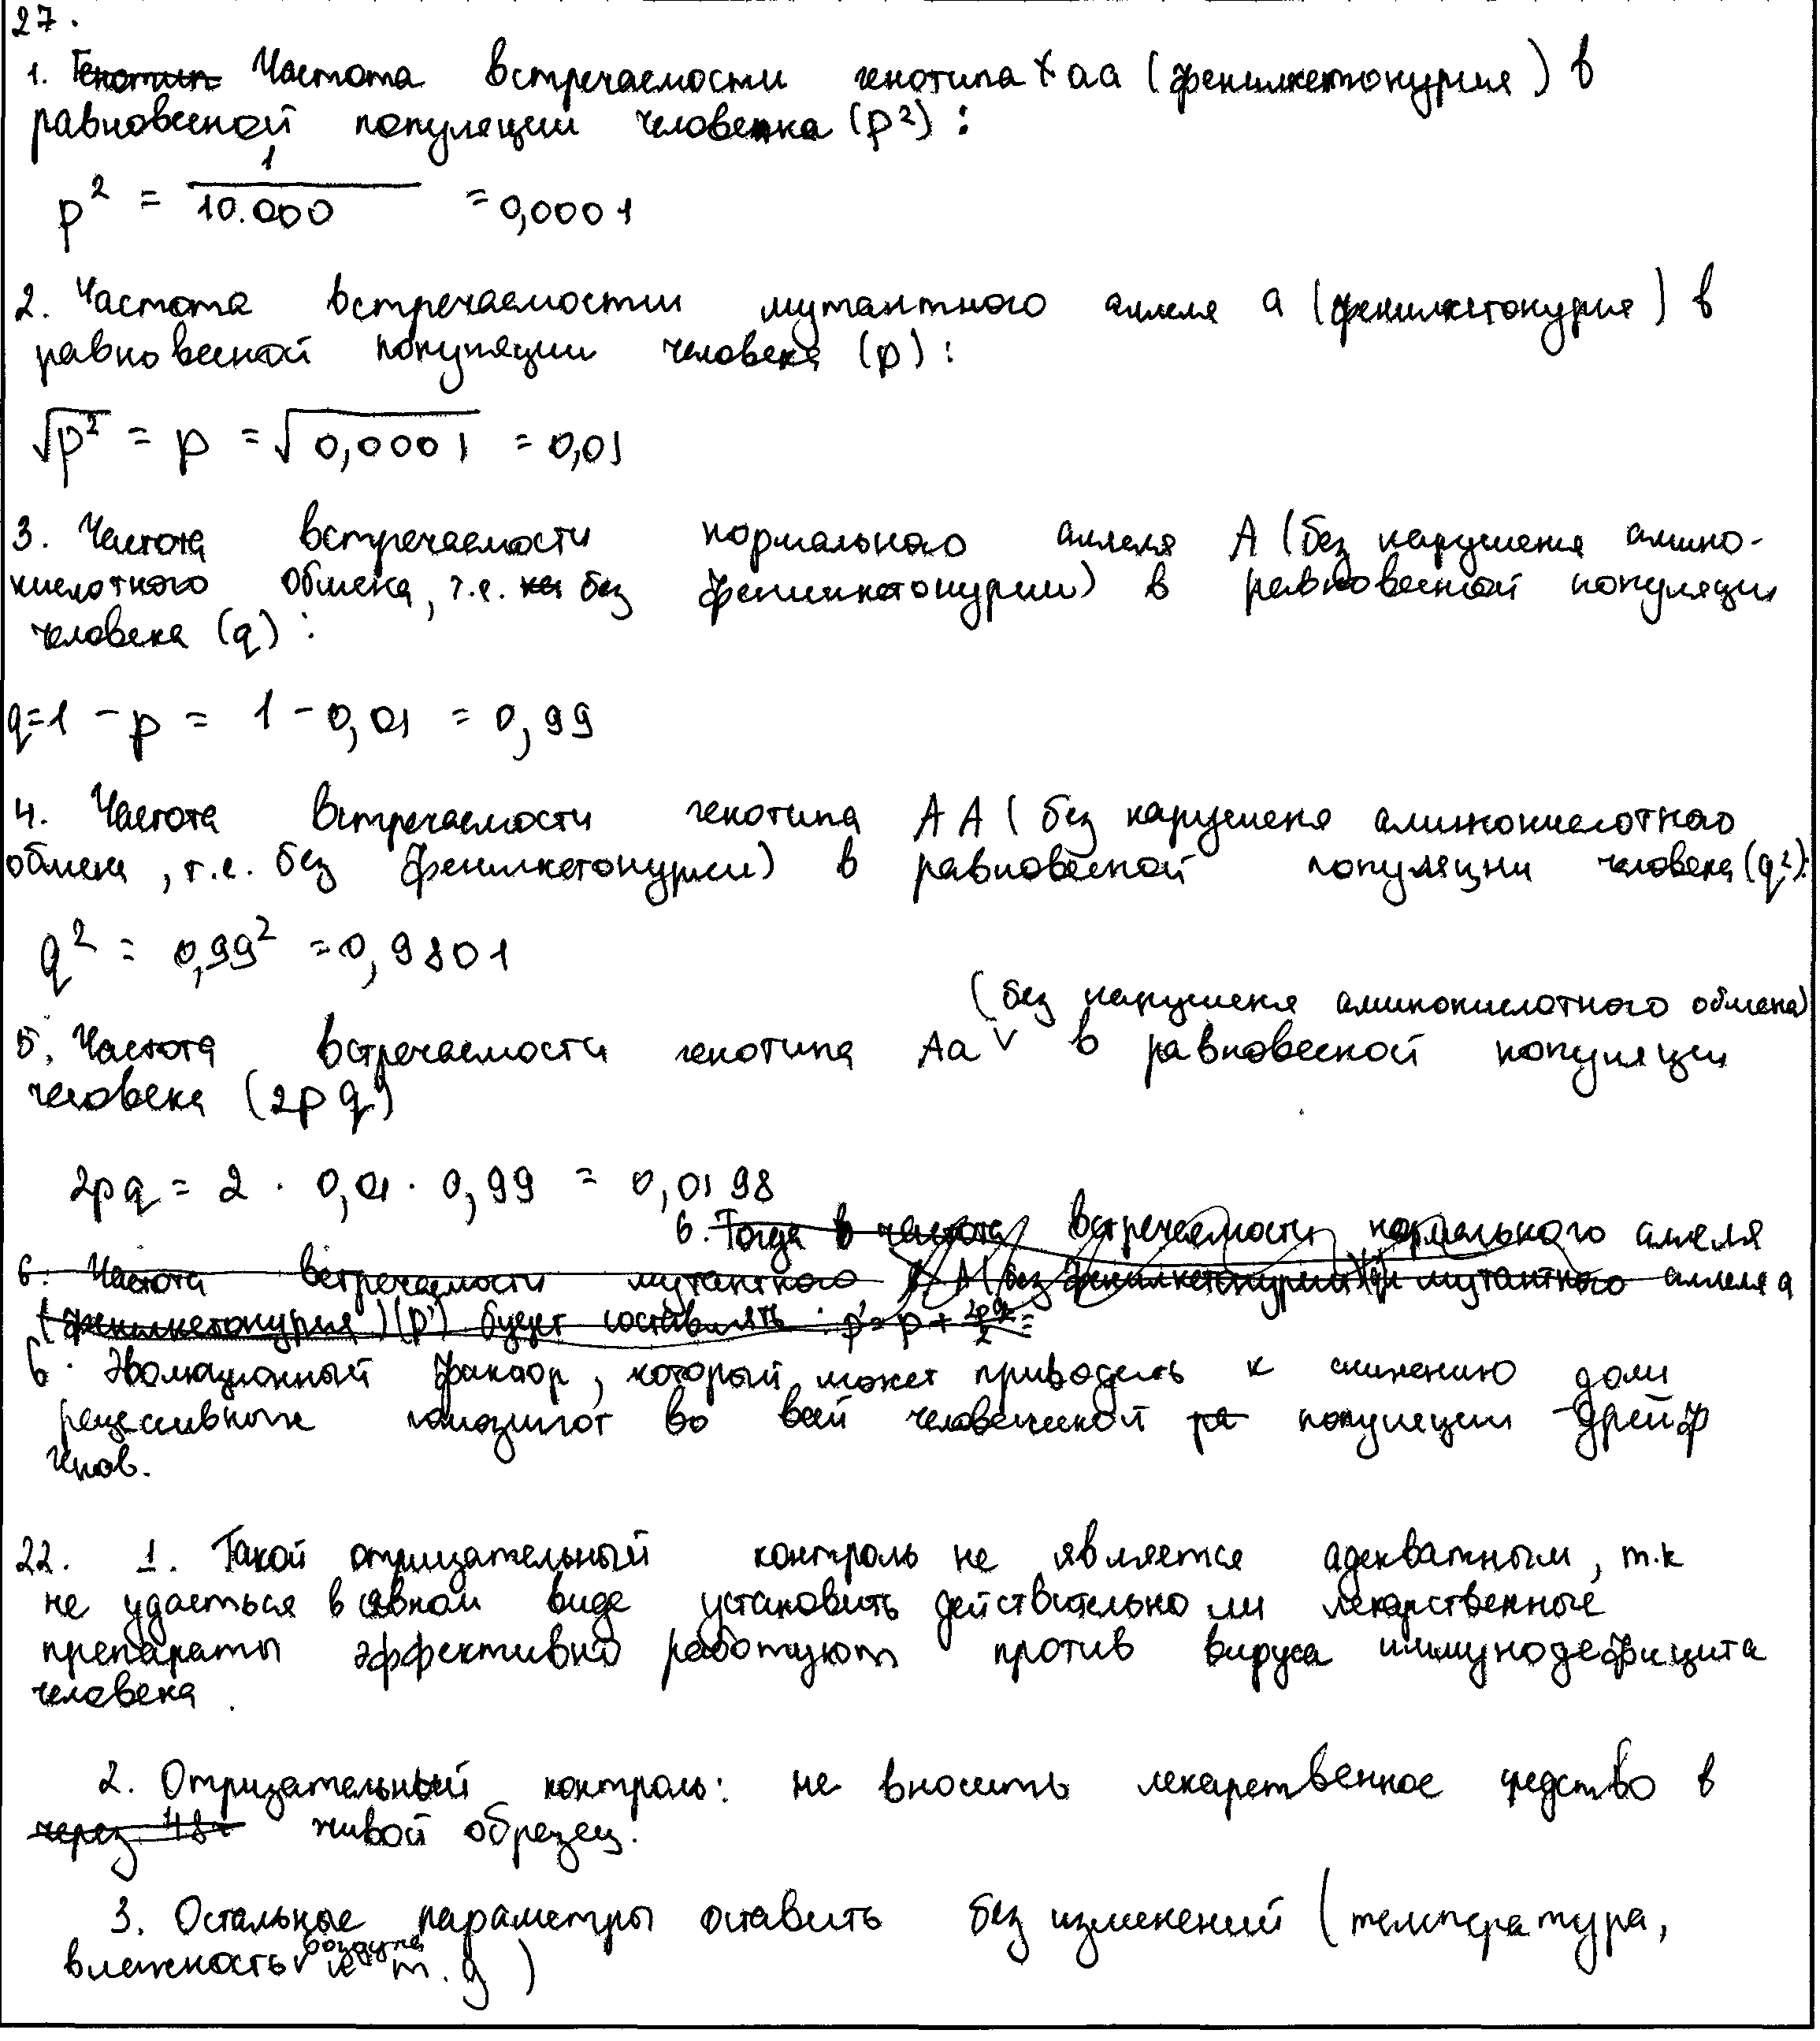 27.
1. Генотип Частота встречаемости генотипа aa (фенилкетонурия) в
равновесной популяции человека (p²):
p² = 1/10.000 = 0,0001
2. Частота встречаемостии мутантного аллеля a (фенилкетонурия) в
равновесной популяции человека (p):
√p² = p = √0,0001 = 0,01
3. Частота встречаемости нормального аллеля A (без нарушения амино-
кислотного обмена, т.е. не без фенилкетонурии) в равновесной популяции
человека (q):
q=1 - p = 1 - 0,01 = 0,99
4. Частота встречаемости генотипа AA (без нарушения аминокислотного
обмена, т.е. без фенилкетонурии) в равновесной популяции человека (q²):
q² = 0,99² = 0,9801
(без нарушения аминокислотного обмена)
5. Частота встречаемости генотипа Aa v в равновесной популяции
человека (2pq)
2pq = 2 · 0,01 · 0,99 = 0,0198
6. Тогда в частота встречаемости нормального аллеля
6. Частота встречаемости мутантного A (без фенилкетонурии) (q) и мутантного аллеля a
(фенилкетонурия) (p') будет составлять : p' = p + 2pq/2 =
6. Эволюционный фактор, который может приводить к снижению доли
рецессивных гомозигот во всей человеческой ра популяции - дрейф
генов.
22. 1. Такой отрицательный контроль не является адекватным, т.к
не удасться в явном виде установить действительно ли лекарственные
препараты эффективно работуют против вируса иммунодефицита
человека.
2. Отрицательный контроль: не вносить лекарственное средство в
через 48ч живой образец.
3. Остальные параметры оставить без изменений (температура,
воздуха
влажность v и т.д)